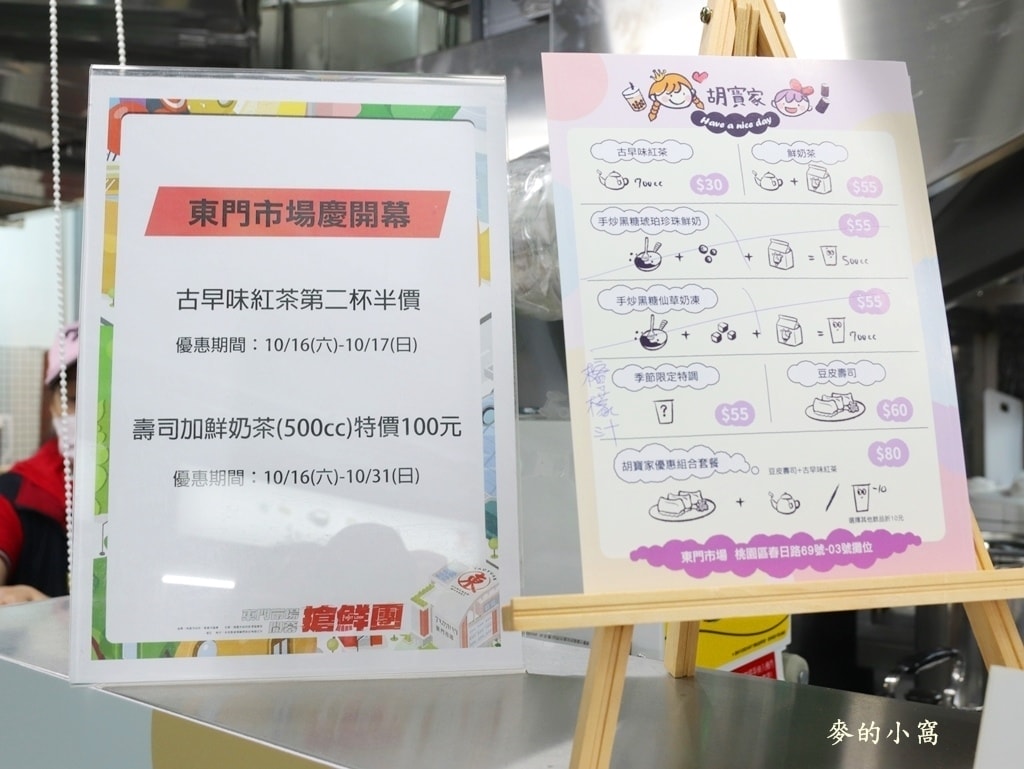 東門市場慶開幕
古早味紅茶第二杯半價
優惠期間：10/16(六)-10/17(日)
壽司加鮮奶茶(500cc)特價100元
優惠期間：10/16(六)-10/31(日)
搶鮮團
東
胡寶家
Have a nice day
古早味紅茶
700cc
$30
鮮奶茶
+
$55
手炒黑糖琥珀珍珠鮮奶
$55
+ + = 500cc
手炒黑糖仙草奶凍
$55
+ + = 700cc
檸檬汁
季節限定特調
?
$55
豆皮壽司
$60
胡寶家優惠組合套餐
豆皮壽司+古早味紅茶
$80
+ / -10
選擇其他飲品折10元
東門市場 桃園區春日路69號-03號攤位
麥的小窩